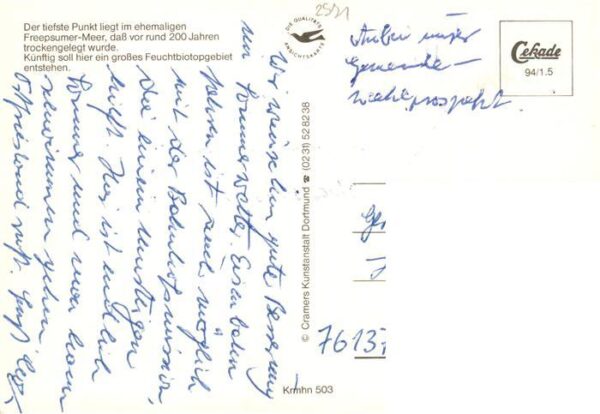 Der tiefste Punkt liegt im ehemaligen
Freepsumer-Meer, daß vor rund 200 Jahren
trockengelegt wurde.
Künftig soll hier ein großes Feuchtbiotopgebiet
entstehen.
DIE QUALITÄTS
ANSICHTSKARTE
Anbei unser
Gemeinde-
Cekade
94/1.5
Wir wünschen gute Besserung
um Sommerwetter. Eisenbahn
fahren ist auch möglich
mit der Bahnhofsmission,
die einem unterwegs
hilft. Hier ist endlich
Sommer und man kann
schwimmen gehen.
Ostfriesland ruft.
© Cramers Kunstanstalt Dortmund ☎ (0231) 528238
76137
Krmhn 503